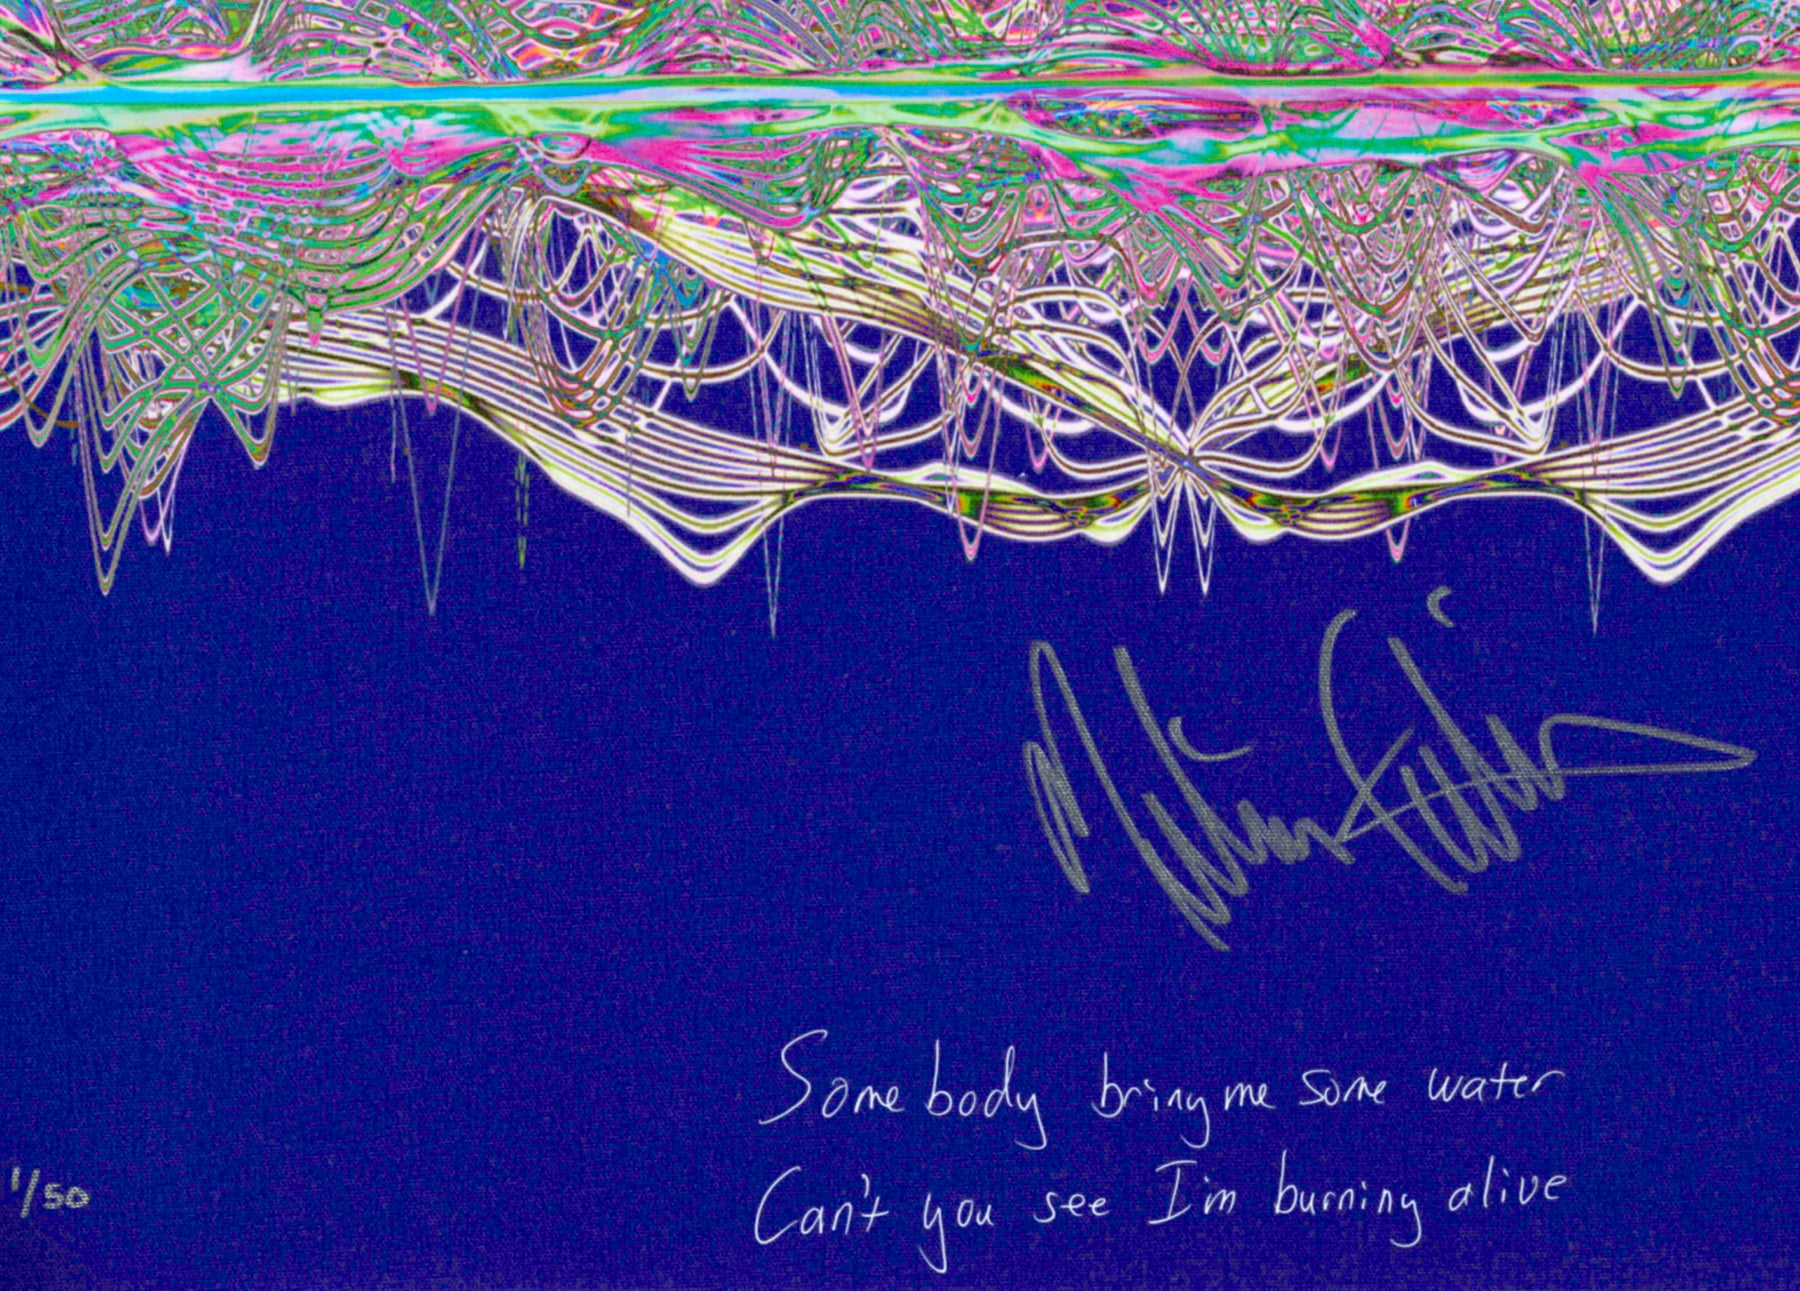 Somebody bring me some water
Can't you see I'm burning alive
1/50